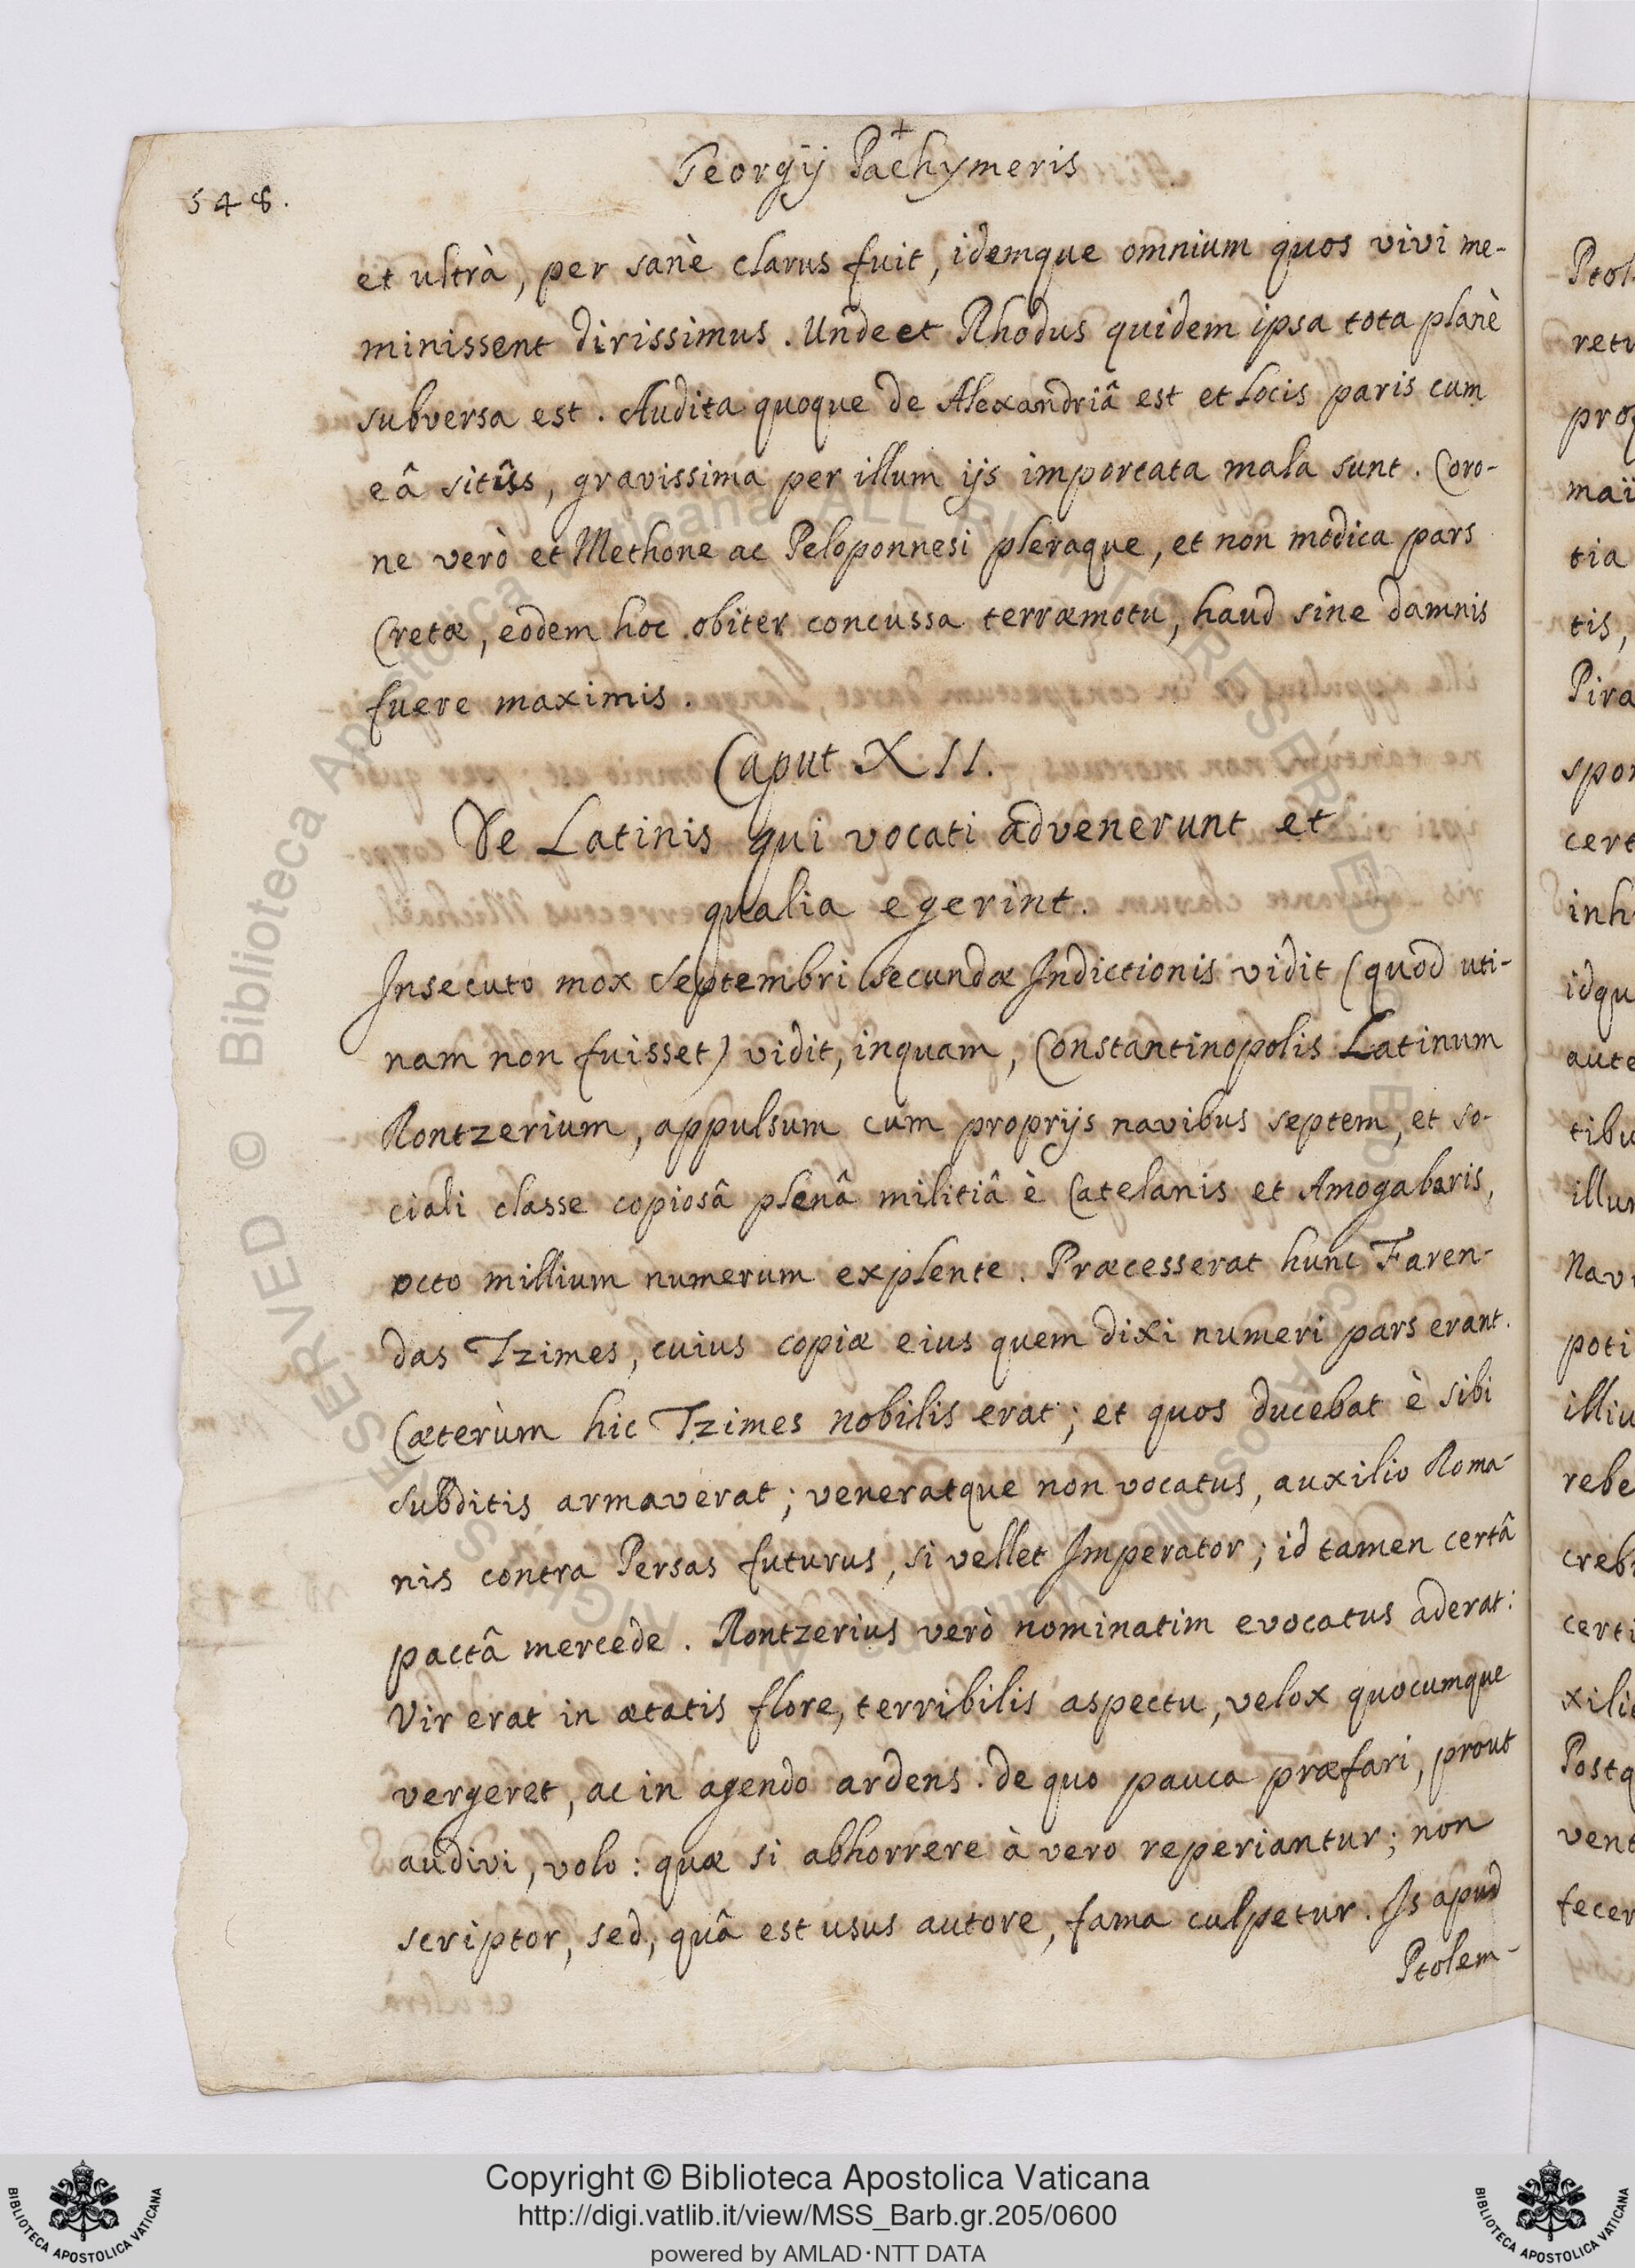 +
548.
Georgij Pachymeris
et ultrà, per sanè clarus fuit, idemque omnium quos vivi me-
minissent dirissimus. Unde et Rhodus quidem ipsa tota planè
subversa est. Audita quoque de Alexandriâ est et locis paris cum
eâ sitûs, gravissima per illum ijs importata mala sunt. Coro-
ne verò et Methone ac Peloponnesi pleraque, et non modica pars
Cretæ, eodem hoc obiter concussa terræmotu, haud sine damnis
fuere maximis.
Caput XII.
De Latinis qui vocati advenerunt et
qualia egerint.
Insecuto mox Septembri secundæ Indictionis vidit (quod uti-
nam non fuisset) vidit, inquam, Constantinopolis Latinum
Rontzerium, appulsum cum proprijs navibus septem, et so-
ciali classe copiosâ plenâ militiâ è Catelanis et Amogabaris,
octo millium numerum explente. Præcesserat hunc Faren-
das Tzimes, cuius copiæ eius quem dixi numeri pars erant.
Cæterùm hic Tzimes nobilis erat; et quos ducebat è sibi
subditis armaverat; veneratque non vocatus, auxilio Roma-
nis contra Persas futurus, si vellet Imperator; id tamen certâ
pactâ mercede. Rontzerius verò nominatim evocatus aderat:
Vir erat in ætatis flore, terribilis aspectu, velox quocumque
vergeret, ac in agendo ardens. de quo pauca præfari, prout
audivi, volo: quæ si abhorrere à vero reperiantur; non
scriptor, sed, quâ est usus autore, fama culpetur. Is apud
Ptolem-
Copyright © Biblioteca Apostolica Vaticana
http://digi.vatlib.it/view/MSS_Barb.gr.205/0600
powered by AMLAD·NTT DATA
BIBLIOTECA APOSTOLICA VATICANA
BIBLIOTECA APOSTOLICA VATICANA